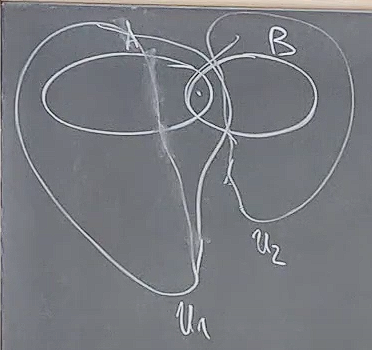 A B
U₂
U₁